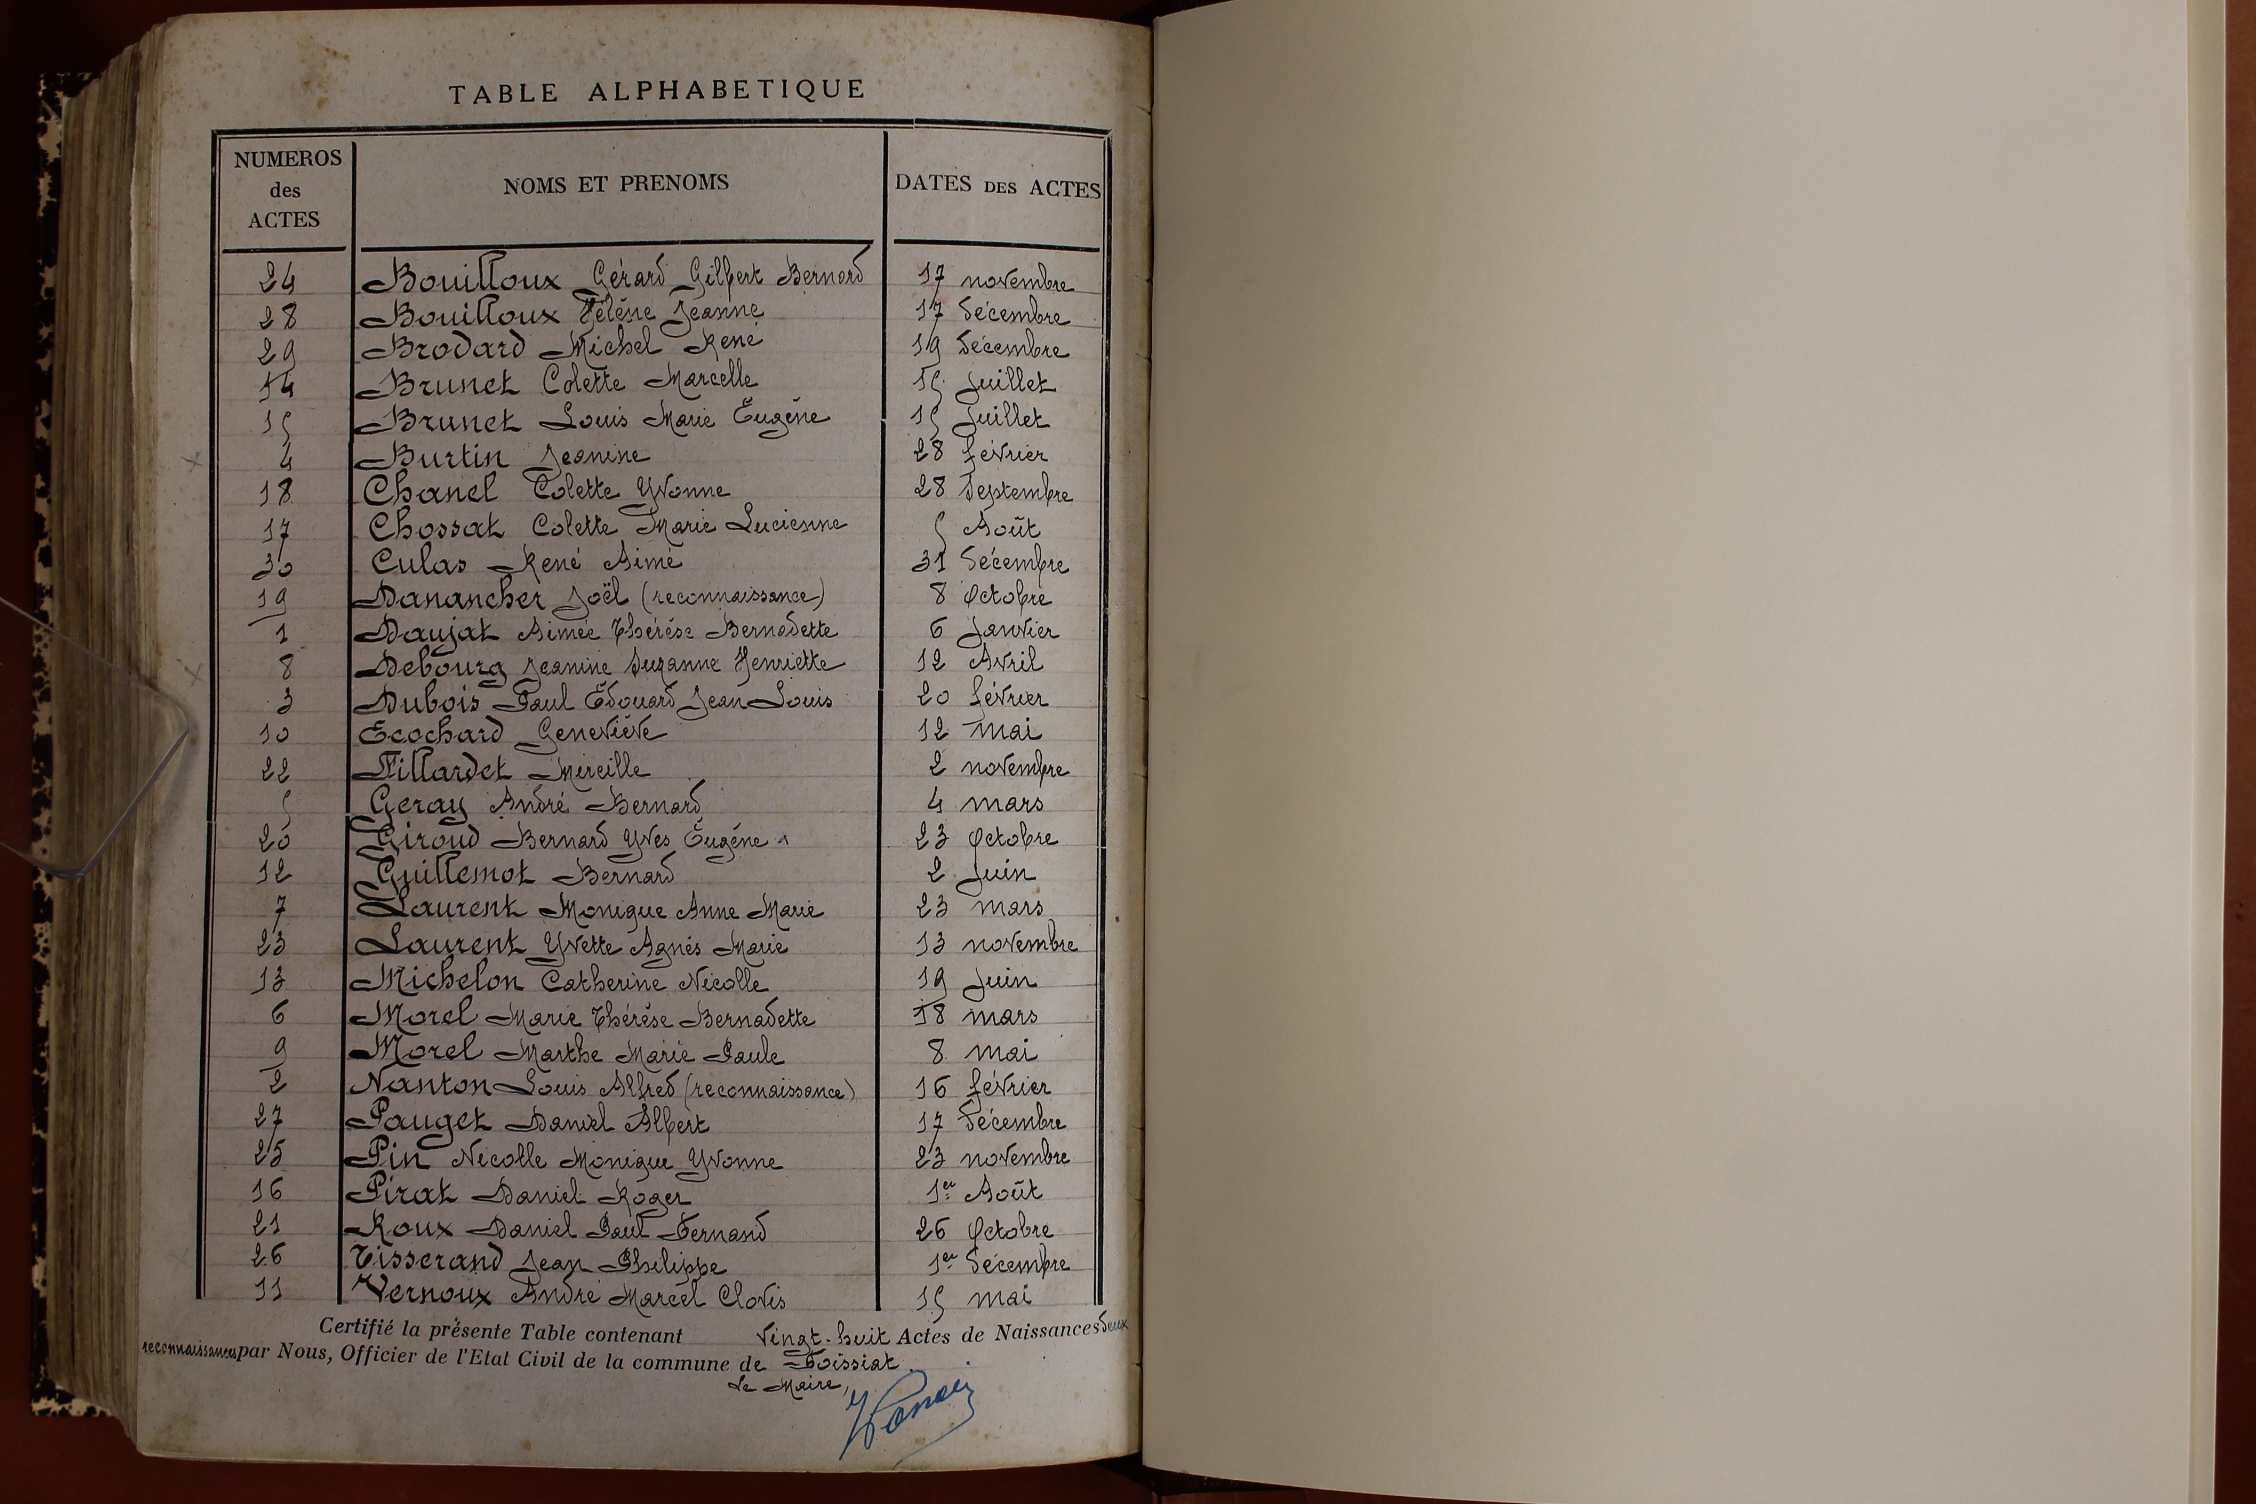 TABLE ALPHABETIQUE
NUMEROS des ACTES NOMS ET PRENOMS DATES DES ACTES
24 Bouilloux Gérard Gilbert Bernard 17 novembre
28 Bouilloux Hélène Jeanne 17 décembre
29 Brodard Michel René 19 décembre
14 Brunet Colette Marcelle 15 Juillet
15 Brunet Louis Marie Eugène 15 Juillet
4 Burtin Jeanine 28 février
18 Chanel Colette Yvonne 28 Septembre
17 Chossat Colette Marie Lucienne 5 Août
30 Culas René Aimé 31 décembre
19 Danancher Joël (reconnaissance) 8 Octobre
1 Daujat Aimée Thérèse Bernadette 6 Janvier
8 Debourg Jeanine Suzanne Henriette 12 Avril
3 Dubois Paul Edouard Jean Louis 20 février
10 Ecochard Geneviève 12 mai
22 Fillardet Mireille 2 novembre
5 Geray André Bernard 4 mars
20 Giroud Bernard Yves Eugène 23 Octobre
12 Guillemot Bernard 2 Juin
7 Laurent Monique Anne Marie 23 mars
23 Laurent Yvette Agnès Marie 13 novembre
13 Michelon Catherine Nicolle 19 Juin
6 Morel Marie Thérèse Bernadette 18 mars
9 Morel Marthe Marie Paule 8 mai
2 Nanton Louis Alfred (reconnaissance) 16 février
27 Pauget Daniel Albert 17 décembre
25 Pin Nicolle Monique Yvonne 23 novembre
16 Pirat Daniel Roger 1er Août
21 Roux Daniel Paul Fernand 26 Octobre
26 Tisserand Jean Philippe 1er décembre
11 Vernoux André Marcel Clovis 15 mai
Certifié la présente Table contenant Vingt-huit Actes de Naissances deux
reconnaissances par Nous, Officier de l'Etat Civil de la commune de Foissiat.
Le Maire,